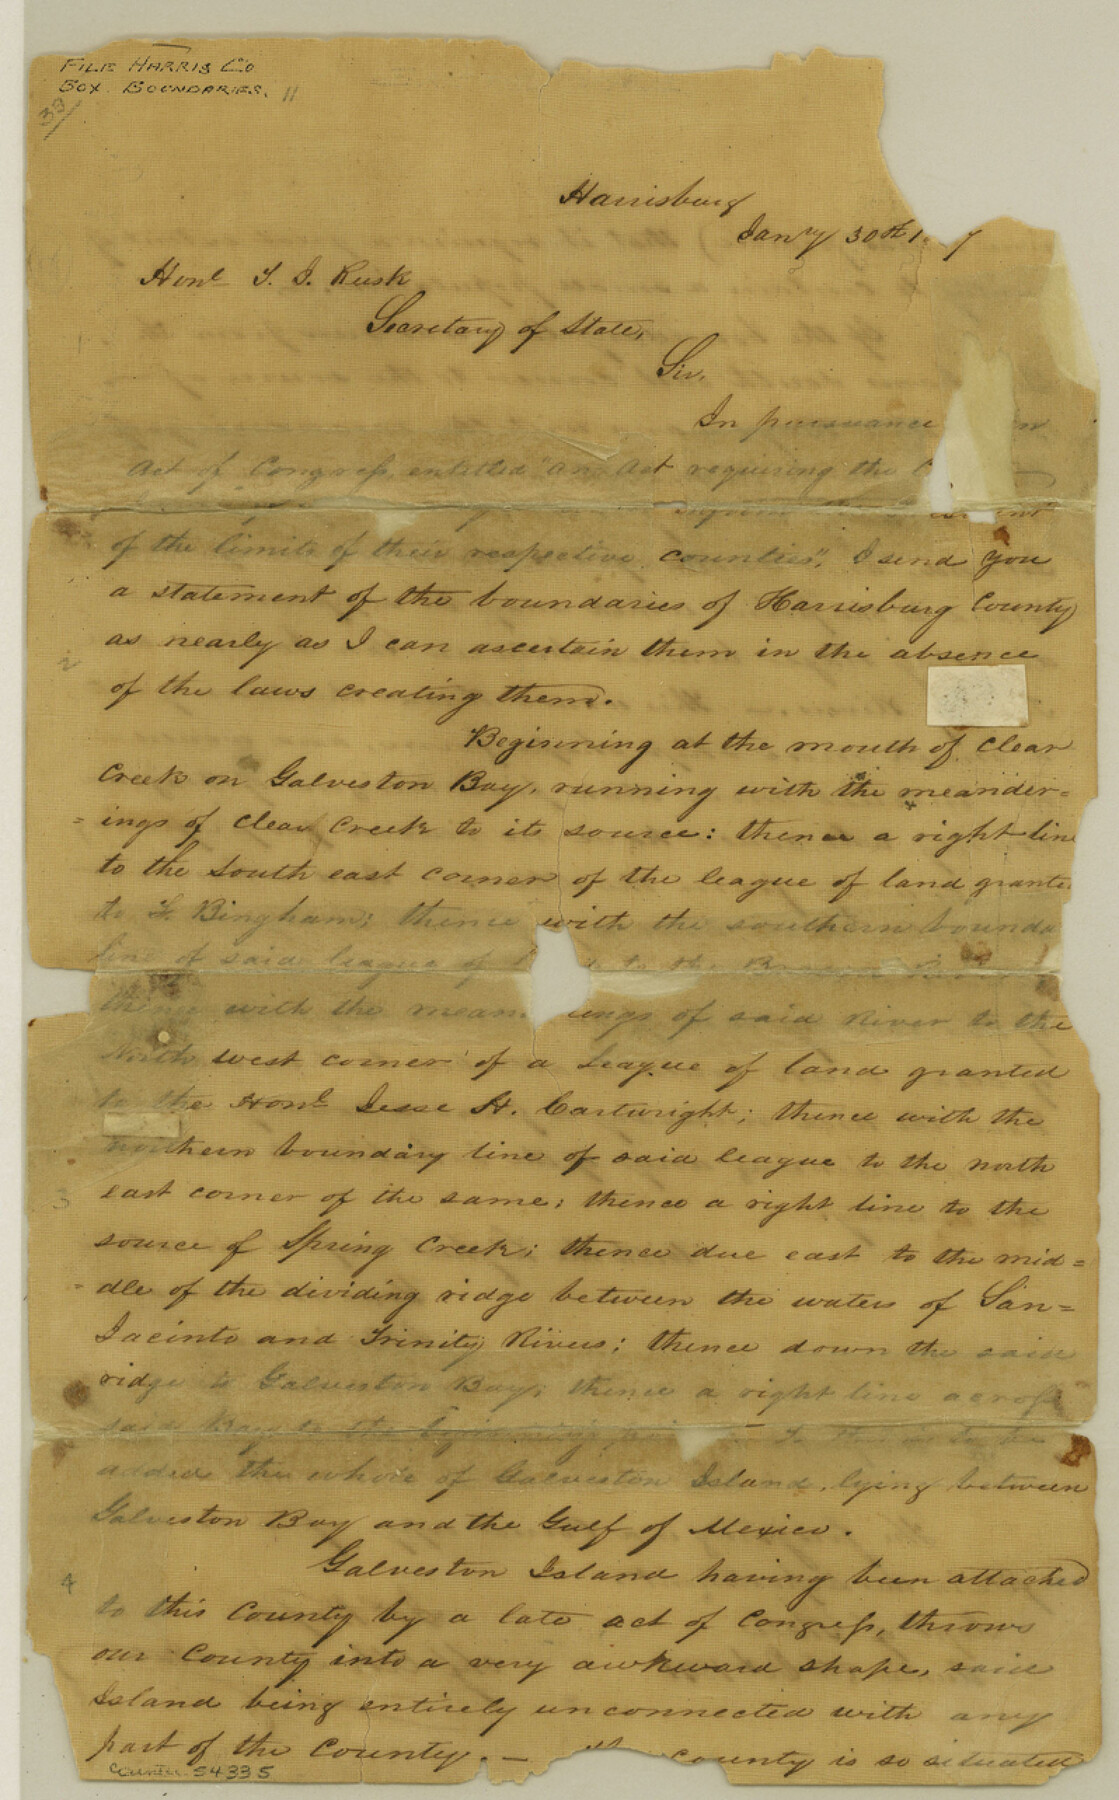 File Harris Co
Box. Boundaries. 11
33/
Harrisburg
Jany 30th 1 7
Honl T. J. Rusk
Secretary of State,
Sir,
In pursuance
Act of Congress, entitled "An Act requiring the
of the limits of their respective counties", I send you
a statement of the boundaries of Harrisburg County
as nearly as I can ascertain them in the absence
2
of the laws creating them.
Beginning at the mouth of Clear
Creek on Galveston Bay, running with the meander=
=ings of Clear Creek to its source: thence a right line
to the South east corner of the league of land grante
to F. Bingham; thence with the southern bounda
line of said league of to the Brazos
thence with the mean ings of said River to the
North west corner of a league of land granted
to the Honl Jesse H. Cartwright; thence with the
northern boundary line of said league to the north
3
east corner of the same; thence a right line to the
source of Spring Creek; thence due east to the mid=
=dle of the dividing ridge between the waters of San=
Jacinto and Trinity Rivers; thence down the said
ridge to Galveston Bay; thence a right line across
said Bay to the beginning to be
added the whole of Galveston Island, lying between
Galveston Bay and the Gulf of Mexico.
Galveston Island having been attached
4
to this County by a late act of Congress, throws
our County into a very awkward shape, said
Island being entirely unconnected with any
part of the County. — County is so situated
Counter 54335